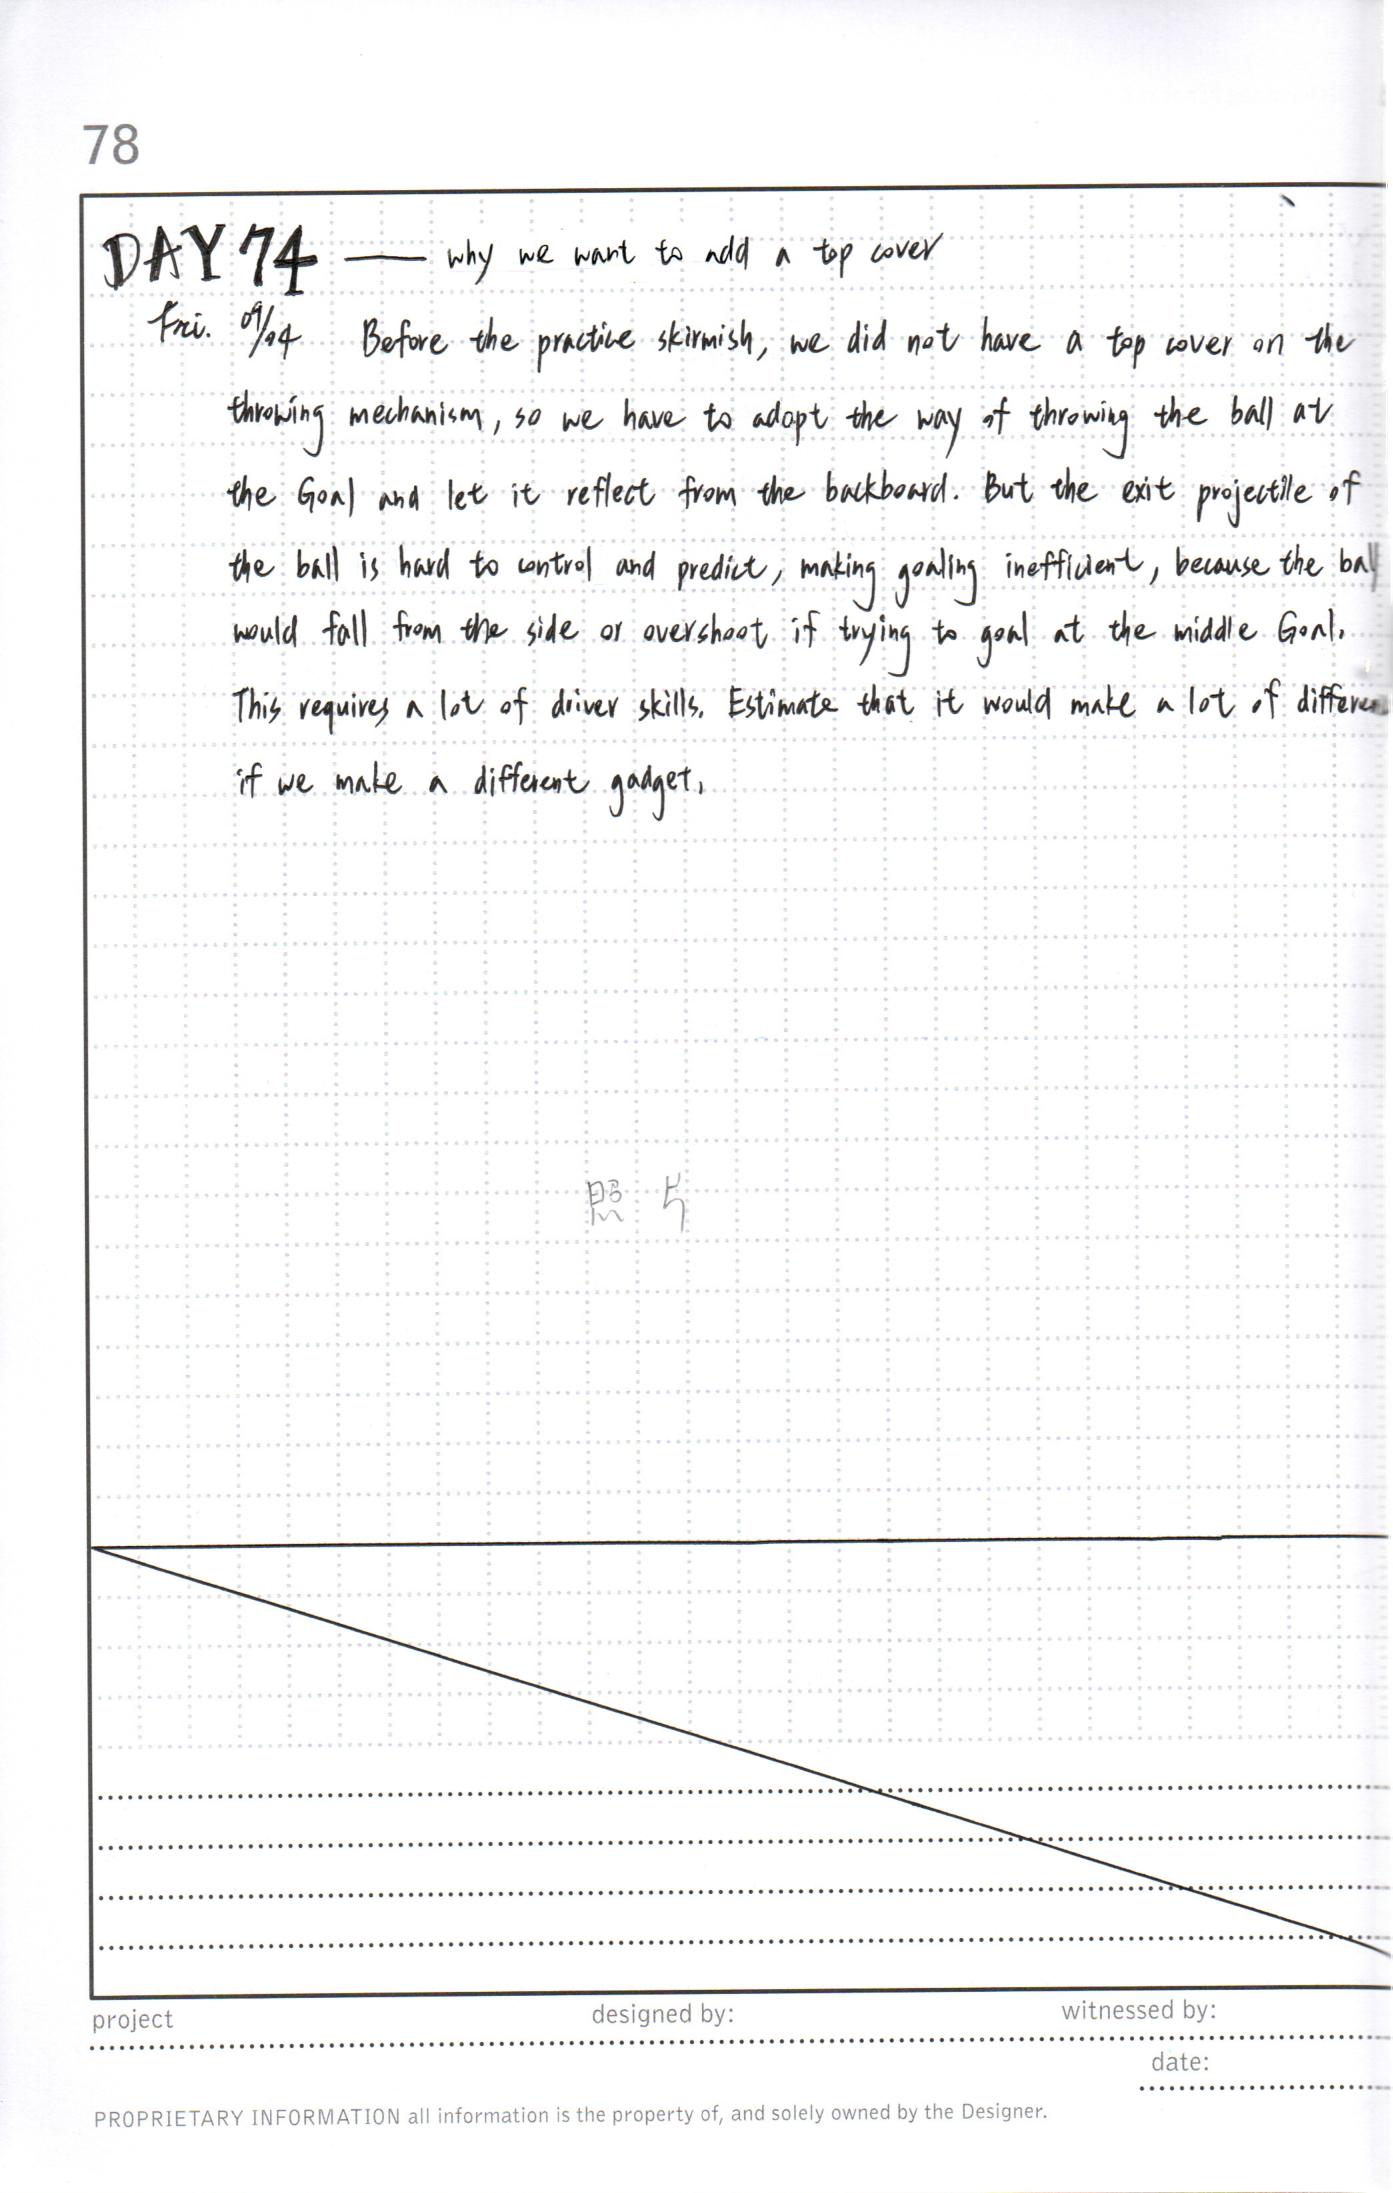 78
DAY 74 — why we want to add a top cover
Fri. 09/04 Before the practice skirmish, we did not have a top cover on the
throwing mechanism, so we have to adopt the way of throwing the ball at
the Goal and let it reflect from the backboard. But the exit projectile of
the ball is hard to control and predict, making goaling inefficient, because the ball
would fall from the side or overshoot if trying to goal at the middle Goal.
This requires a lot of driver skills. Estimate that it would make a lot of
if we make a different gadget.
照片
project designed by: witnessed by:
date:
PROPRIETARY INFORMATION all information is the property of, and solely owned by the Designer.